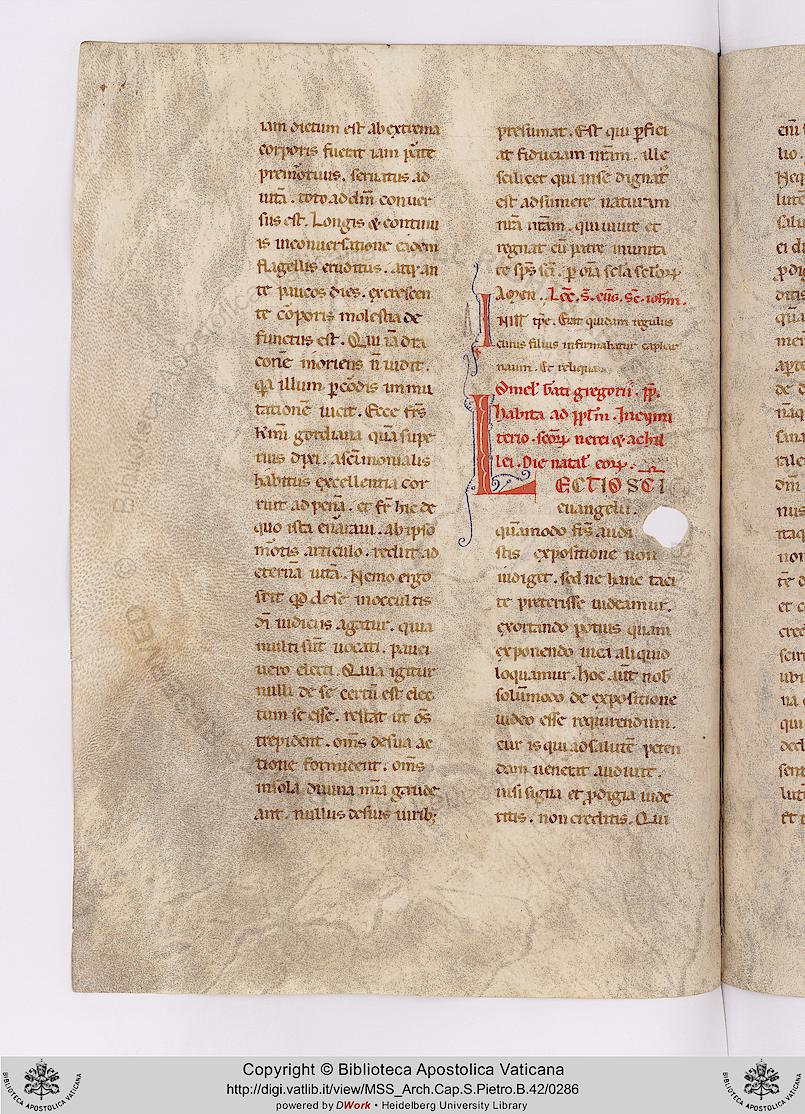 iam dictum est ab extrema
corporis fuerit iam parte
premortuus . seruatus ad
uitā . toto ad dm̄ conuer
sus est . Longis & continu
is inconuersatione eadem
flagellis eruditus . atq; an
te paucos dies . excrescen
te corporis molestia de
functus est . Qui iā dra
conē moriens n̄ uidit .
qa illum p cordis immu
tationē uicit . Ecce frs̄
km̄i gordiana quā supe
rius dixi . a scī monialis
habitus excellentia cor
ruit ad penā . et fr̄ hic de
quo ista enarraui . ab ipso
mortis articulo . rediit ad
eternā uitā . Nemo ergo
scit qd̄ de se in occultis
dī iudiciis agatur . quia
multi sūt uocati . pauci
uero electi . Quia igitur
nulli de se certū est elec
tum se esse . restat ut om̄s
trepident . om̄s de sua ac
tione formident . om̄s
in sola diuina mīa gaude
ant . nullus de suis uirib;
presumat . Est qui pfici
at fiduciam nr̄am . ille
scilicet qui in se dignat
est adsumere naturam
nr̄am . qui uiuit et
regnat cū patre in unita
te sps̄ scī . p om̄a scl̄a scl̄orꝝ
Amen . Lec̄ . s̄ . eūg . sc̄ . ioh̄m .
IN ill tp̄e . Erat quidam regulus
cuius filius infirmabatur caphar
naum . Et reliqua .
Omel̄ bati gregorii . pp̄ .
habita ad pplm̄ . In cymi
terio . scōrꝝ nerei & achil
lei . Die natal̄ eorꝝ .
LECTIO SCI
euangelii .
quāmodo frs̄ audi
stis expositione non
indiget . sed ne hanc taci
te preterisse uideamur .
exortando potius quam
exponendo in ea aliquid
loquamur . Hoc aūt nob̄
solūmodo de expositione
uideo esse requirendum .
cur is qui ad salutē peten
dam uenerat audiuit .
nisi signa et pdigia uide
ritis . non creditis . Qui
Copyright © Biblioteca Apostolica Vaticana
http://digi.vatlib.it/view/MSS_Arch.Cap.S.Pietro.B.42/0286
powered by DWork • Heidelberg University Library